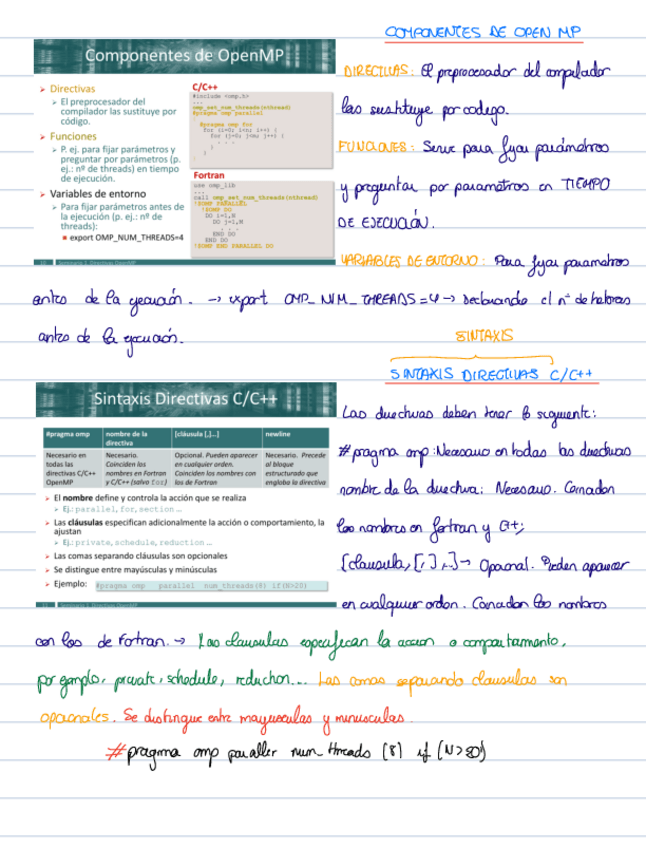 COMPONENTES DE OPEN MP
Componentes de OpenMP
Directivas
El preprocesador del
compilador las sustituye por
código.
Funciones
P. ej. para fijar parámetros y
preguntar por parámetros (p.
ej.: nº de threads) en tiempo
de ejecución.
Variables de entorno
Para fijar parámetros antes de
la ejecución (p. ej.: nº de
threads):
export OMP_NUM_THREADS=4
C/C++
#include <omp.h>
...
omp_set_num_threads(nthread)
#pragma omp parallel
{
#pragma omp for
for (i=0; i<n; i++) {
for (j=0; j<m; j++) {
. . .
}
}
Fortran
use omp_lib
...
call omp_set_num_threads(nthread)
!$OMP PARALLEL
!$OMP DO
DO i=1,N
DO j=1,M
. . .
END DO
END DO
!$OMP END PARALLEL DO
Seminario 1. Directivas OpenMP
DIRECTIVAS: El preprocesador del compilador
las sustituye por codigo.
FUNCIONES: Sirve para fijar parámetros
y preguntar por parametros en TIEMPO
DE EJECUCIÓN.
VARIABLES DE ENTORNO: Para fijar parametros
antes de la ejecución. → export OMP_NUM_THREADS=4 → declarando el nº de hebras
antes de la ejecución.
SINTAXIS
SINTAXIS DIRECTIVAS C/C++
Sintaxis Directivas C/C++
#pragma omp | nombre de la directiva | [cláusula [,]...] | newline
Necesario en todas las directivas C/C++ OpenMP | Necesario. Coinciden los nombres en Fortran y C/C++ (salvo for) | Opcional. Pueden aparecer en cualquier orden. Coinciden los nombres con los de Fortran | Necesario. Precede al bloque estructurado que engloba la directiva
El nombre define y controla la acción que se realiza
Ej.: parallel, for, section …
Las cláusulas especifican adicionalmente la acción o comportamiento, la
ajustan
Ej.: private, schedule, reduction …
Las comas separando cláusulas son opcionales
Se distingue entre mayúsculas y minúsculas
Ejemplo: #pragma omp parallel num_threads(8) if(N>20)
Seminario 1. Directivas OpenMP
Las directivas deben tener lo siguiente:
#pragma omp: Necesario en todas las directivas
nombre de la directiva: Necesario. Coinciden
los nombres en fortran y C++;
[clausula, [,] ...] → Opcional. Pueden aparecer
en cualquier orden. Coinciden los nombres
con los de Fortran. → Las clausulas especifican la accion o comportamiento,
por ejemplo, private, schedule, reduction... Las comas separando clausulas son
opcionales. Se distingue entre mayusculas y minusculas.
#pragma omp paraller num_threads (8) if (N>20)